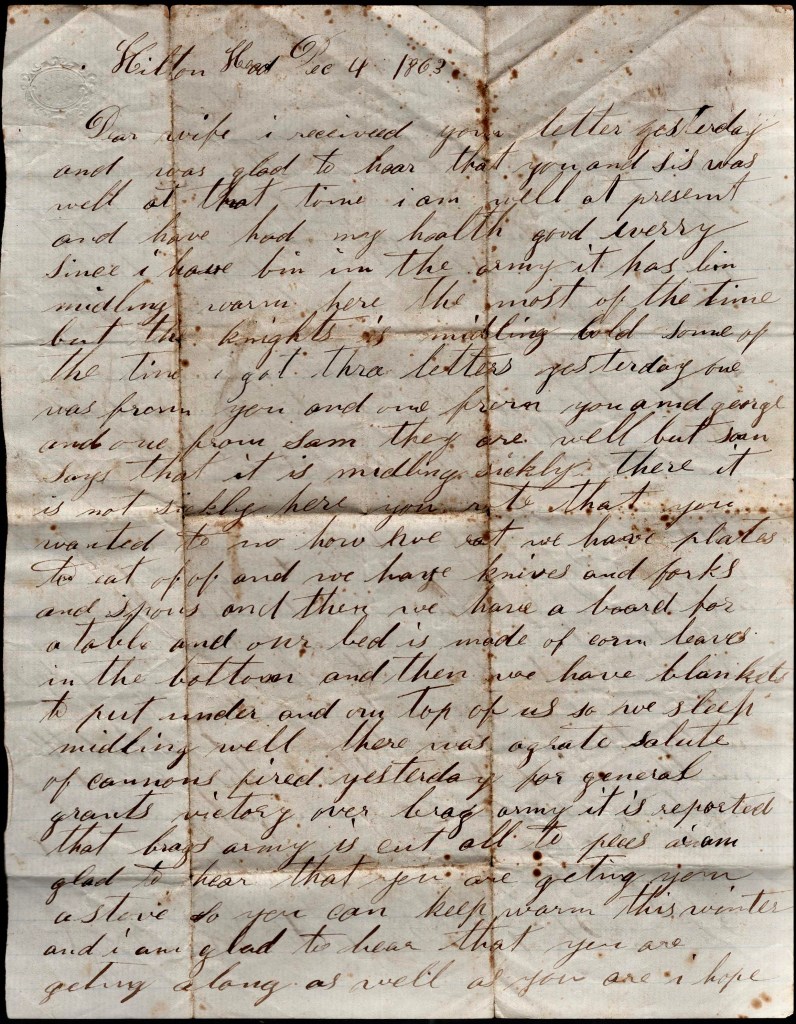 Hilton Head Dec 4 1863
Dear wife i received your letter yesterday
and was glad to hear that you and sis was
well at that time i am well at present
and have had my health good everry
since i have bin in the army it has bin
midling warm here the most of the time
but the knights is midling cold some of
the time i got thre letters yesterday one
was from you and one from you and george
and one from sam they are well but sam
says that it is midling sickly there it
is not sickly here you rote that you
wanted to no how we eat we have plates
to eat of of and we have knives and forks
and spons and then we have a board for
a table and our bed is made of corn leaves
in the bottom and then we have blankets
to put under and on top of us so we sleep
midling well there was a grate salute
of cannons fired yesterday for general
grants victory over brag army it is reported
that brags army is cut all to peces i am
glad to hear that you are geting you
a stove so you can keep warm this winter
and i am glad to hear that you are
geting along as well as you are i hope